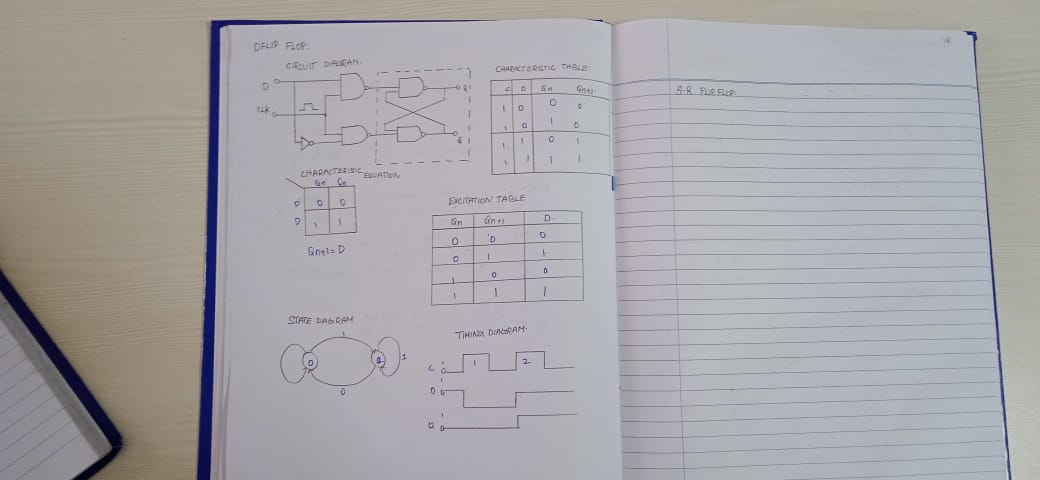 DFLIP FLOP:
CIRCUIT DIAGRAM:
D
CLK
Q
Q̅
CHARACTERISTIC TABLE:
C D Qn Qn+1
1 0 0 0
1 0 1 0
1 1 0 1
1 1 1 1
CHARACTERISTIC EQUATION:
Qn' Qn
D' 0 0
D 1 1
Qn+1 = D
EXCITATION TABLE
Qn Qn+1 D
0 0 0
0 1 1
1 0 0
1 1 1
STATE DIAGRAM
1
0
1
0
TIMING DIAGRAM.
1
C 0
1 2
D 0
1
Q 0
18
S-R FLIP FLOP: